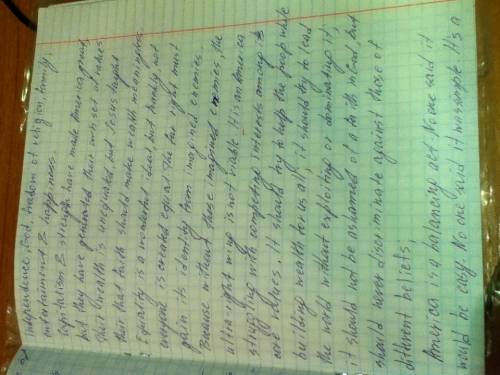 independence, God, freedom of religion, family,
entertainment & happiness.
Capitalism & strength have made America great,
but they have generated their own set of values
Their wealth is unequaled, but Jesus taught
their that faith should make wealth meaningless.
Equality is a wonderful ideal, but frankly not
everyone is created equal. The far right must
gain its identity from imagined enemies.
Because without those imagined enemies, the
ultra right wing is not viable. It is an America
struggling with competing interests among its
core values. It should try to help the poor while
building wealth for us all; it should try to lead
the world without exploiting or dominating it,
it should not be ashamed of a faith in God, but
should never discriminate against those of
different beliefs.
America is a balancing act. No one said it
would be easy. No one said it was simple. It's a